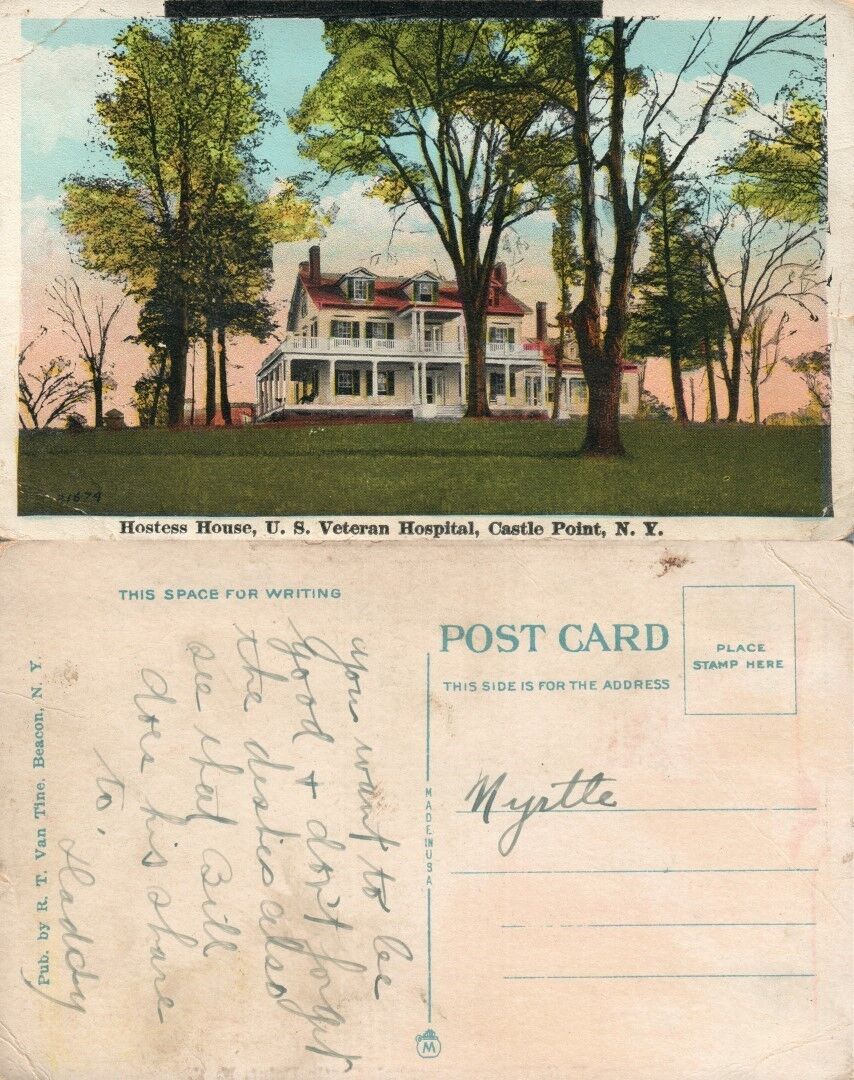 21674
Hostess House, U. S. Veteran Hospital, Castle Point, N. Y.
THIS SPACE FOR WRITING
POST CARD
THIS SIDE IS FOR THE ADDRESS
PLACE
STAMP HERE
Pub. by R. T. Van Tine, Beacon, N. Y.
MADE IN USA
you want to be
good + don't forget
the dishes also
see that Bill
does his share
to,
Daddy
Myrtle
M